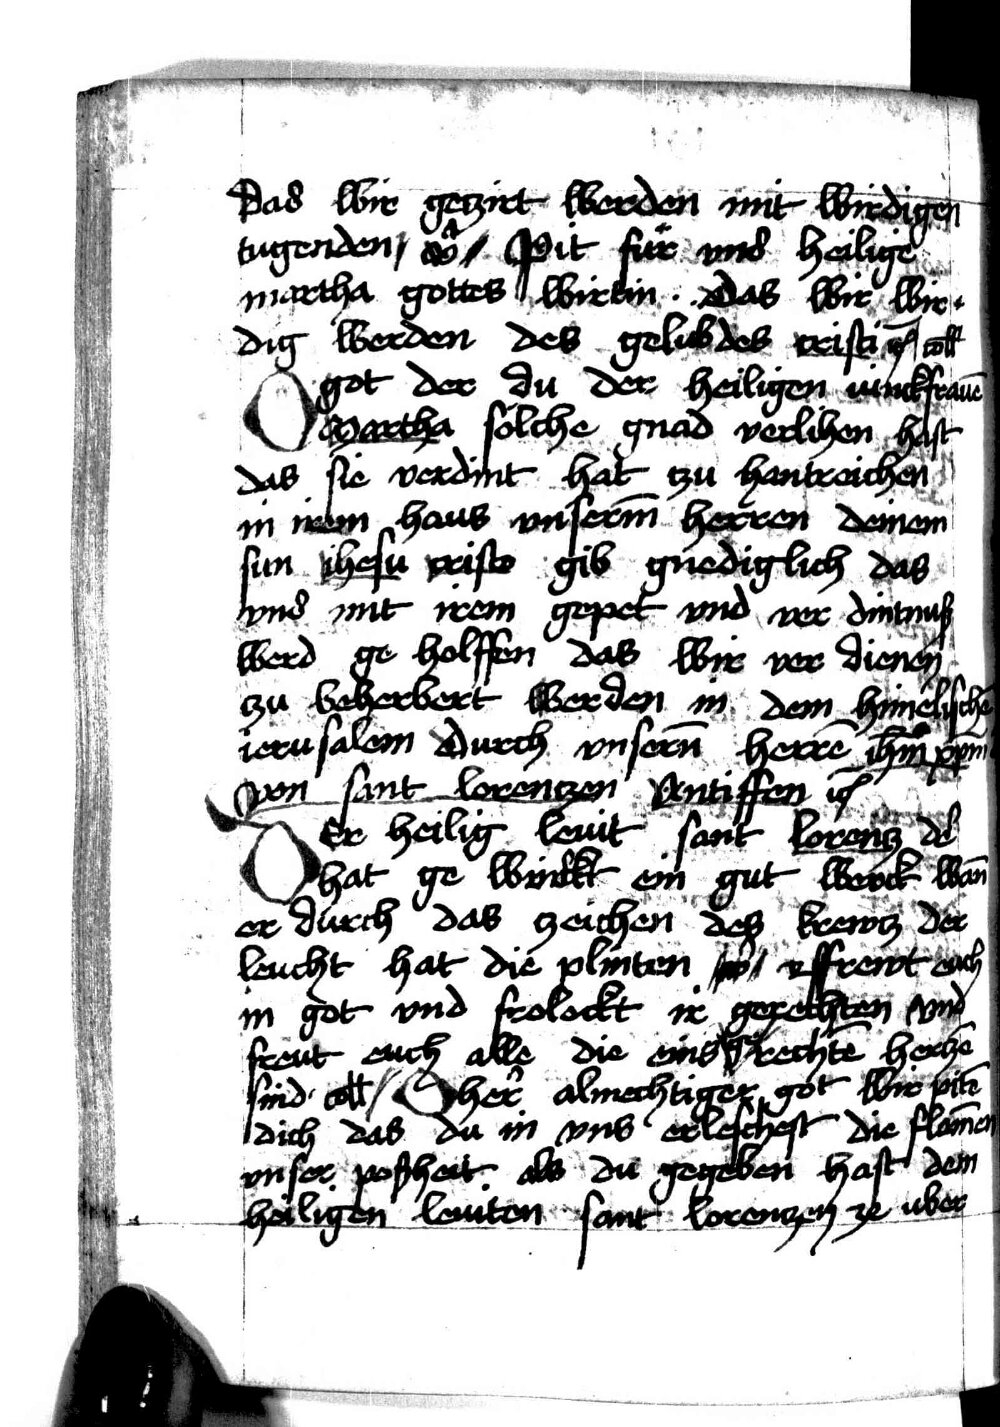 Das wir getzirt werden mit wirdigen
tugenden / Pit für vns heilige
martha gottes wirtin . Das wir wir
dig werden des gelubdes cristi coll
O got der du der heiligen iunckfrauē
Martha solche gnad verlihen hast
das sie verdint hat tzu hantreichen
in irem haus vnserm herren deinem
sun ihesu cristo gib gnediglich das
vns mit irem gepet vnd ver dintnuß
werd ge holffen das wir ver dienen
zu beherbert werden in dem himelischē
ierusalem durch vnsern̄ herrē ihm̄ xpm
von sant lorentzen Antiffen
Der heilig leuit sant lorentz de
hat ge wirckt ein gut werck wan̄
er durch das tzeichen des krewtz der
leucht hat die plinten / effrewt euch
in got vnd frolockt ir gerechten vnd
freut euch alle die eins rechtē hertzē
sind . coll / O her almechtiger got wir pitē
dich das du in vns erleschest die flam̄en
vnser poßheit . als du gegeben hast dem
heiligen leuiten sant lorentzen ze uber